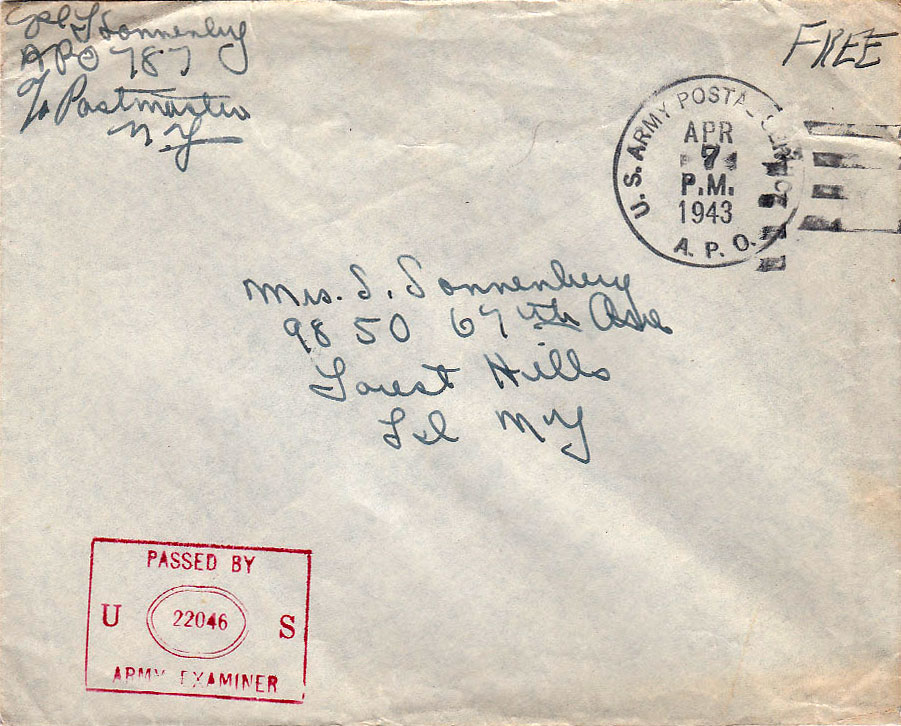 Cpl S Sonnenberg
APO 787
c/o Postmaster
N.Y.
FREE
U.S. ARMY POSTAL
A.P.O.
APR
7
P.M.
1943
Mrs. S. Sonnenberg
98 50 67th Ave
Forest Hills
L I N Y
PASSED BY
U 22046 S
ARMY EXAMINER